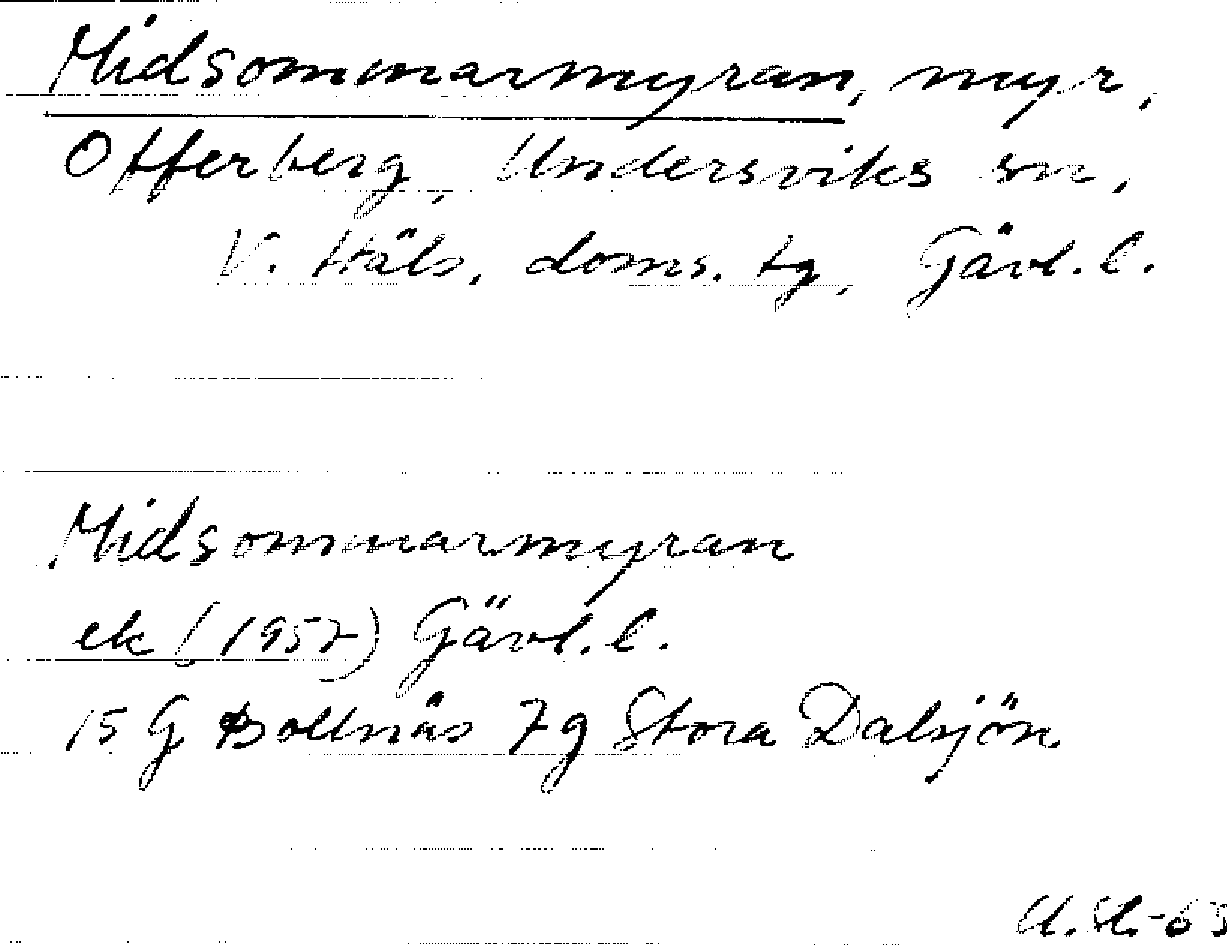 Midsommarmyran, myr,
Offerberg, Undersviks sn,
V. Häls. doms. tg, Gävl. l.
Midsommarmyran
ek (1957) Gävl. l.
15 G Bollnäs 7g Stora Dalsjön